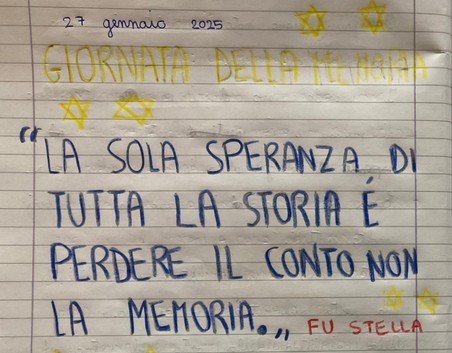 27 gennaio 2025
GIORNATA DELLA MEMORIA
"LA SOLA SPERANZA DI
TUTTA LA STORIA É
PERDERE IL CONTO NON
LA MEMORIA.„ FU STELLA